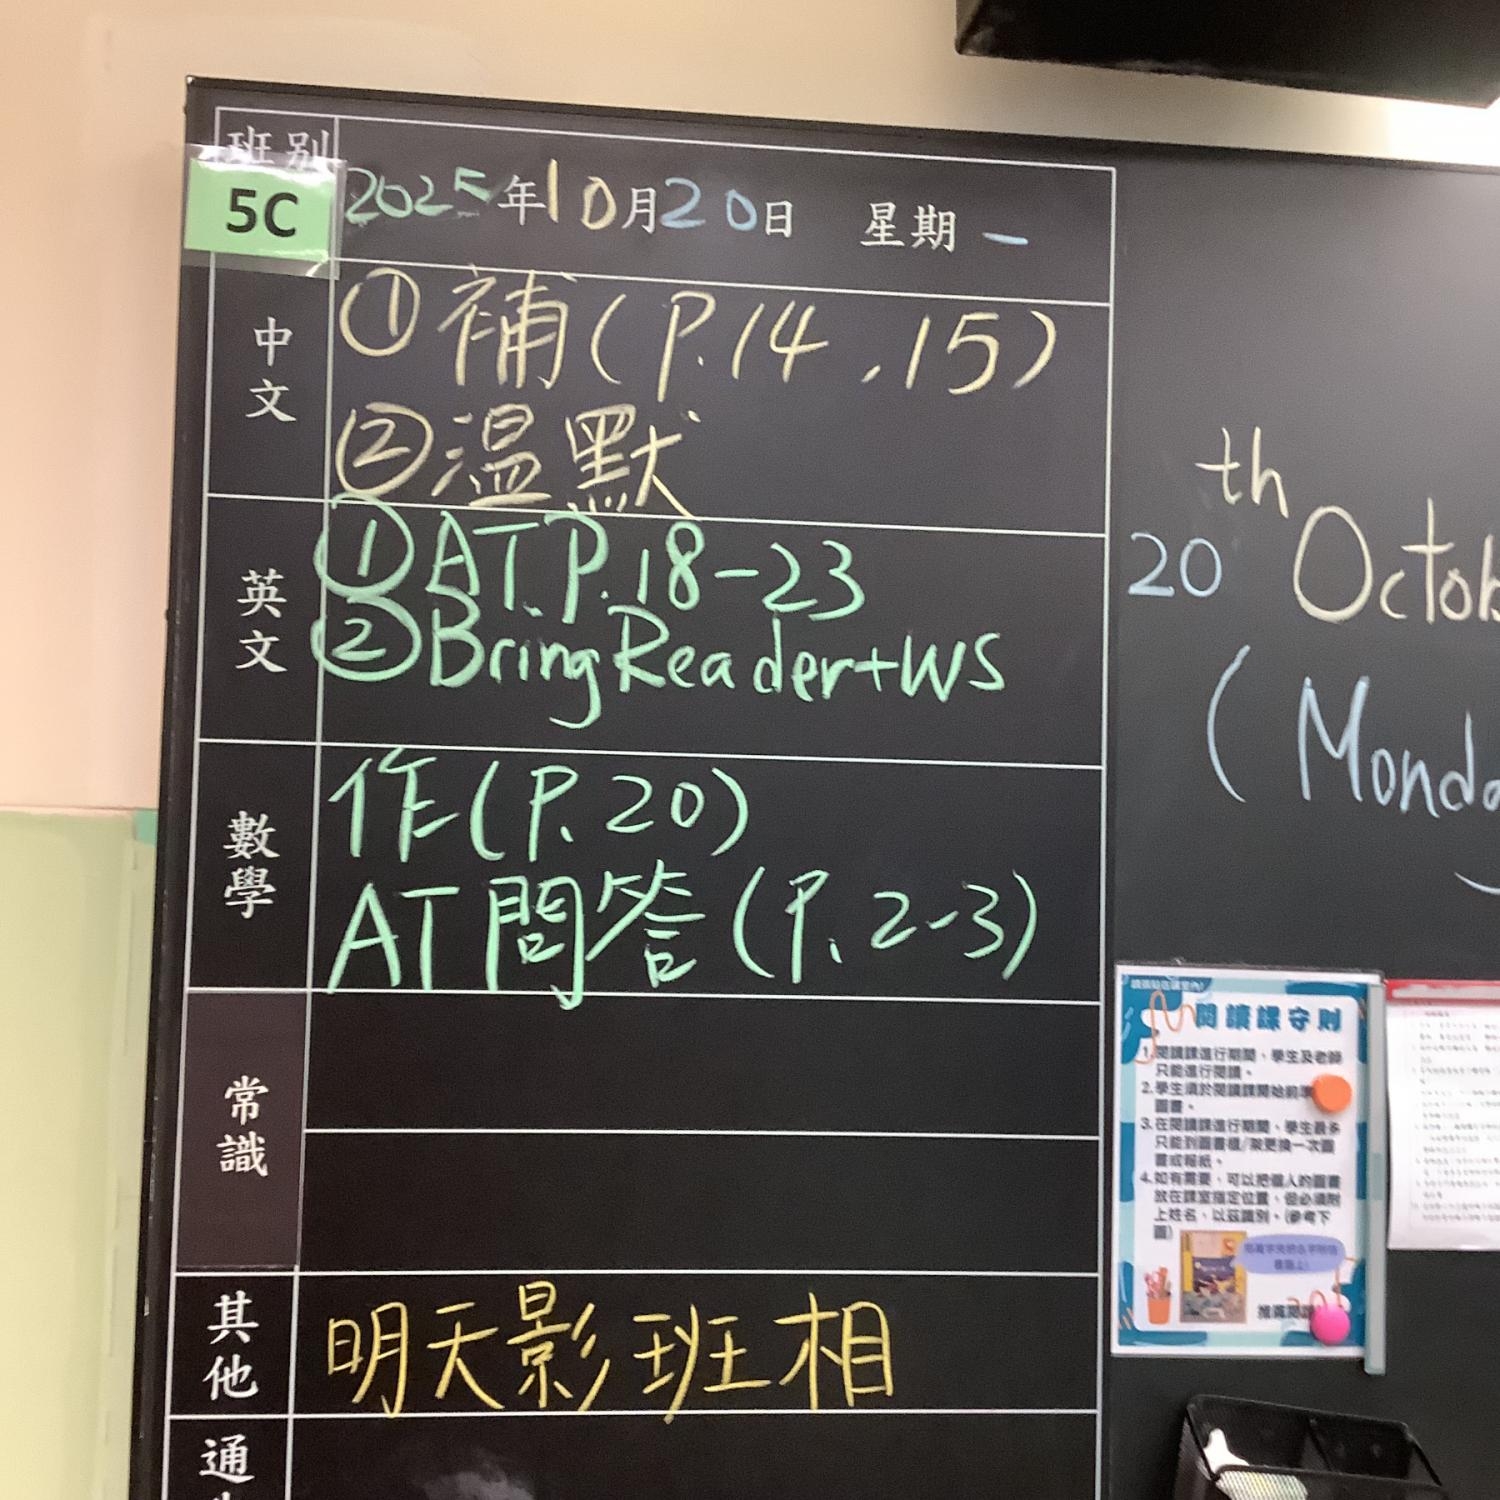 班別
5C
2025年10月20日 星期一
中文
①補(P.14,15)
②溫默
英文
①AT.P.18-23
②Bring Reader+WS
數學
作(P.20)
AT問答(P.2-3)
常識
其他
明天影班相
通
20th Octob
(Monda
閱讀課守則
1.閱讀課進行期間,學生及老師
只能進行閱讀。
2.學生須於閱讀課開始前準
圖書。
3.在閱讀課進行期間,學生最多
只能到圖書櫃/架更換一次圖
書或報紙。
4.如有需要,可以把個人的圖書
放在課室指定位置,但必須附
上姓名,以茲識別。(參考下
圖)